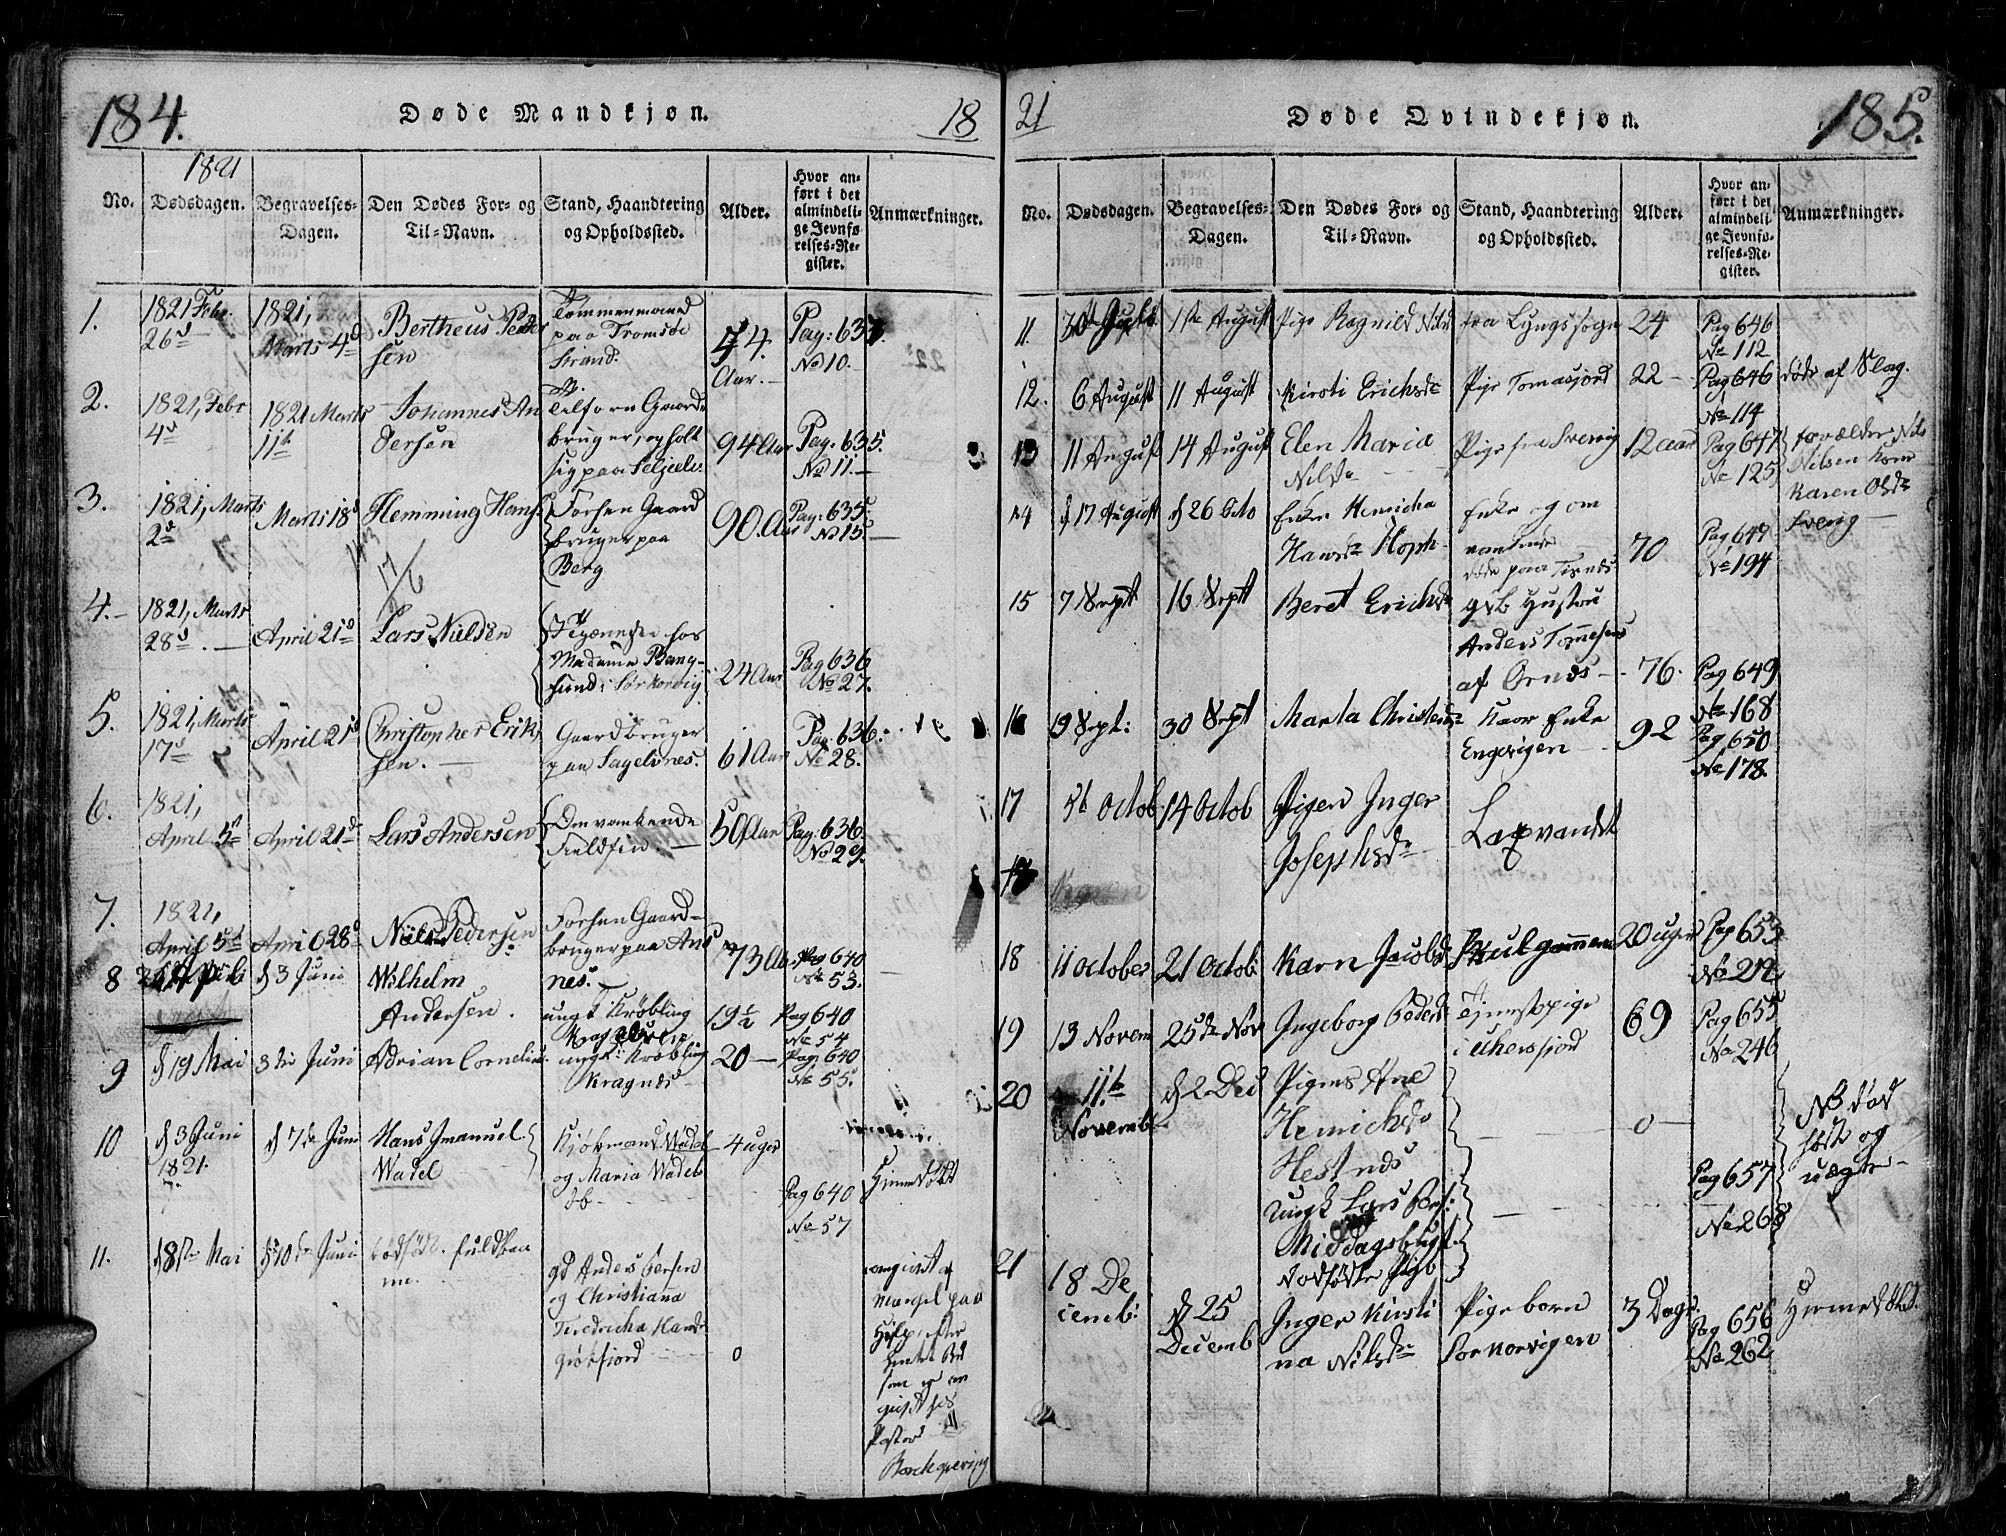 184.
Døde Mandkjøn.
18
1821
No.
Dødsdagen.
Begravelses-
Dagen.
Den Dødes For- og
Til-Navn.
Stand, Haandtering
og Opholdssted.
Alder.
Hvor an-
ført i det
almindeli-
ge Jevnfø-
relses-Re-
gister.
Anmærkninger.
1.
1821 Febr.
26d
1821,
Marts 4d
Bertheus Peder
sen
Tømmermand
paa Tromsøe
Strand.
54.
Aar.
Pag: 637.
No 10.
2.
1821, Febr
4d
1821 Marts
11te
Johannes An
dersen
Tilforn Gaard
bruger, opholt
sig paa
94 Aar
Pag. 635.
No 11.
3.
1821, Marts
2d
Marts 18d
Hemming Hans
Forhen Gaard
bruger paa
Berg
90. Aar
Pag: 635
No 15
4.
1821, Marts
28d.
April 21d
Lars Nielsen
hos
Madame Bang
24 Aar
Pag 636
No 27.
5.
1821, Marts
17d
April 21d
Christopher Erik
sen.
Gaardbruger
paa Sagelvnes.
61 Aar
Pag: 636.
No 28.
6.
1821,
April 5d
April 21d
Lars Andersen
Omvankende
Fieldfin
50 Aar
Pag: 636
No 29.
7.
1821,
April 5d
April 28d
Niels Pedersen
Forhen Gaard-
bruger paa And
nes.
73 Aar
Pag 640
No 53.
8
d 3 Juni
Wilhelm
Andersen.
ungk Krøbling
19½
Pag 640
No 54
9
d 19 Mai
3de Juni
Adrian Cornelius
ungk: Krøbling
Kragnæs
20
Pag: 640
No 55.
10
d 3 Juni
1821.
d 7de Juni
Hans Imanuel
Wadel
Wadel
og Maria Wadel
4 uger
Pag 640
No 57
Hjemedøbt
11.
Mai
d 10de Juni
dødfødt. fuldbaa
rne.
gd Anders Persen
og Christiana
Fredricha Hansd
0
angivet af
Mangel paa
Hielp
21
Døde Qvindekjøn.
185.
No.
Dødsdagen.
Begravelses-
Dagen.
Den Dødes For- og
Til-Navn.
Stand, Haandtering
og Opholdssted.
Alder.
Hvor an-
ført i det
almindeli-
ge Jevnfø-
relses-Re-
gister.
Anmærkninger.
11.
1ste August
Pige Ragnild Nilsd
fra Lyngs sogn
24
Pag 646
No 112
12.
6 August
11 August
Kirsti Erichsdr
Pige Tomasjord
22
Pag 646
No 114
døde af Slag.
13
11 August
14 August
Elen Maria
Nilsdr
Pige fra Sverrig
12 aar
Pag 647
No 125
forælder Nils
Nilsen kone
Karen Olsdr
Sverig
14
d 17 August
d 26 Octo
Enke Henricha
Hansdr
Enke og om
vankende
døde paa
70
Pag 647
No 194
15
7 Septt
16 Septt
Beret Erichsdr
gsb Hustru
Anders Tomesens
af
76.
Pag 649
No 168
16
19 Sept:
30 Sept
Marta Christens
Enke
Engvigen
92
Pag 650
No 178.
17
5t Octob
14 Octob
Pigen Inger
Josephsdr
Laxvandet
18
11 October
21 Octob:
Karn Jacobsd
20 uger
Pag 653
No 212
19
13 Novem
25de Nov
Ingeborg Pedersd
Tjenestepige
i Ulversfiord
69
Pag 655
No 246
20
11te
Novemb
d 2 Dec
Pigens Ane
Henrichsdr
Hestnæs
Ungk Lars
dødfødte Pigb
0
Pag 657
No 268
NB død
født og
uægte
21
18 De
cemb:
d 25
Decemb
Inger Kirsti
na Nilsdr
Pigeborn
Sørkorvigen
3 Dage
Pag 656
No 262
Hjemedøbt